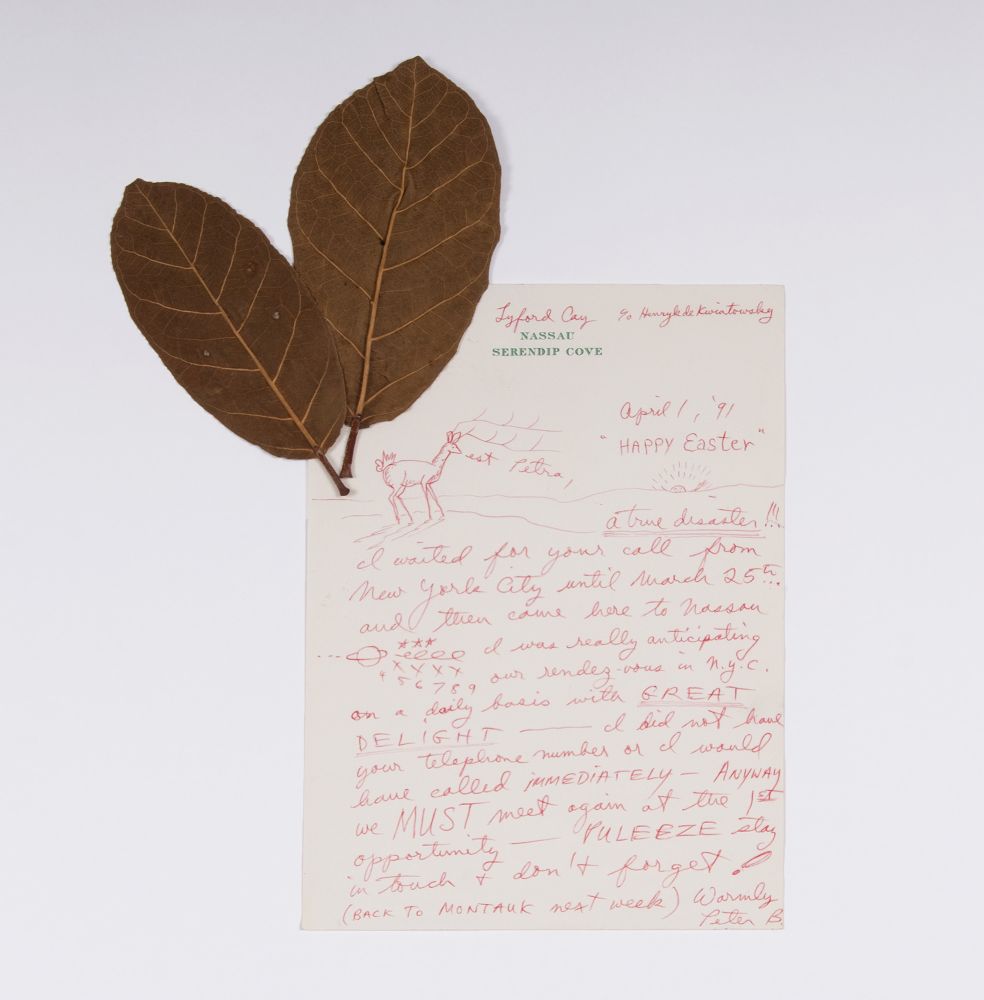 Lyford Cay c/o Henryk de Kwiatowsky
NASSAU
SERENDIP COVE
April 1, '91
"HAPPY Easter"
est Petra,
a true disaster!!!
I waited for your call from
New York City until March 25th...
and then came here to Nassau
I was really anticipating
4 5 6 7 8 9 our rendez-vous in N.Y.C.
on a daily basis with GREAT
DELIGHT — I did not have
your telephone number or I would
have called IMMEDIATELY — ANYWAY
we MUST meet again at the 1st
opportunity — PULEEZE stay
in touch + don't forget!
(BACK TO MONTAUK next week) Warmly
Peter B.